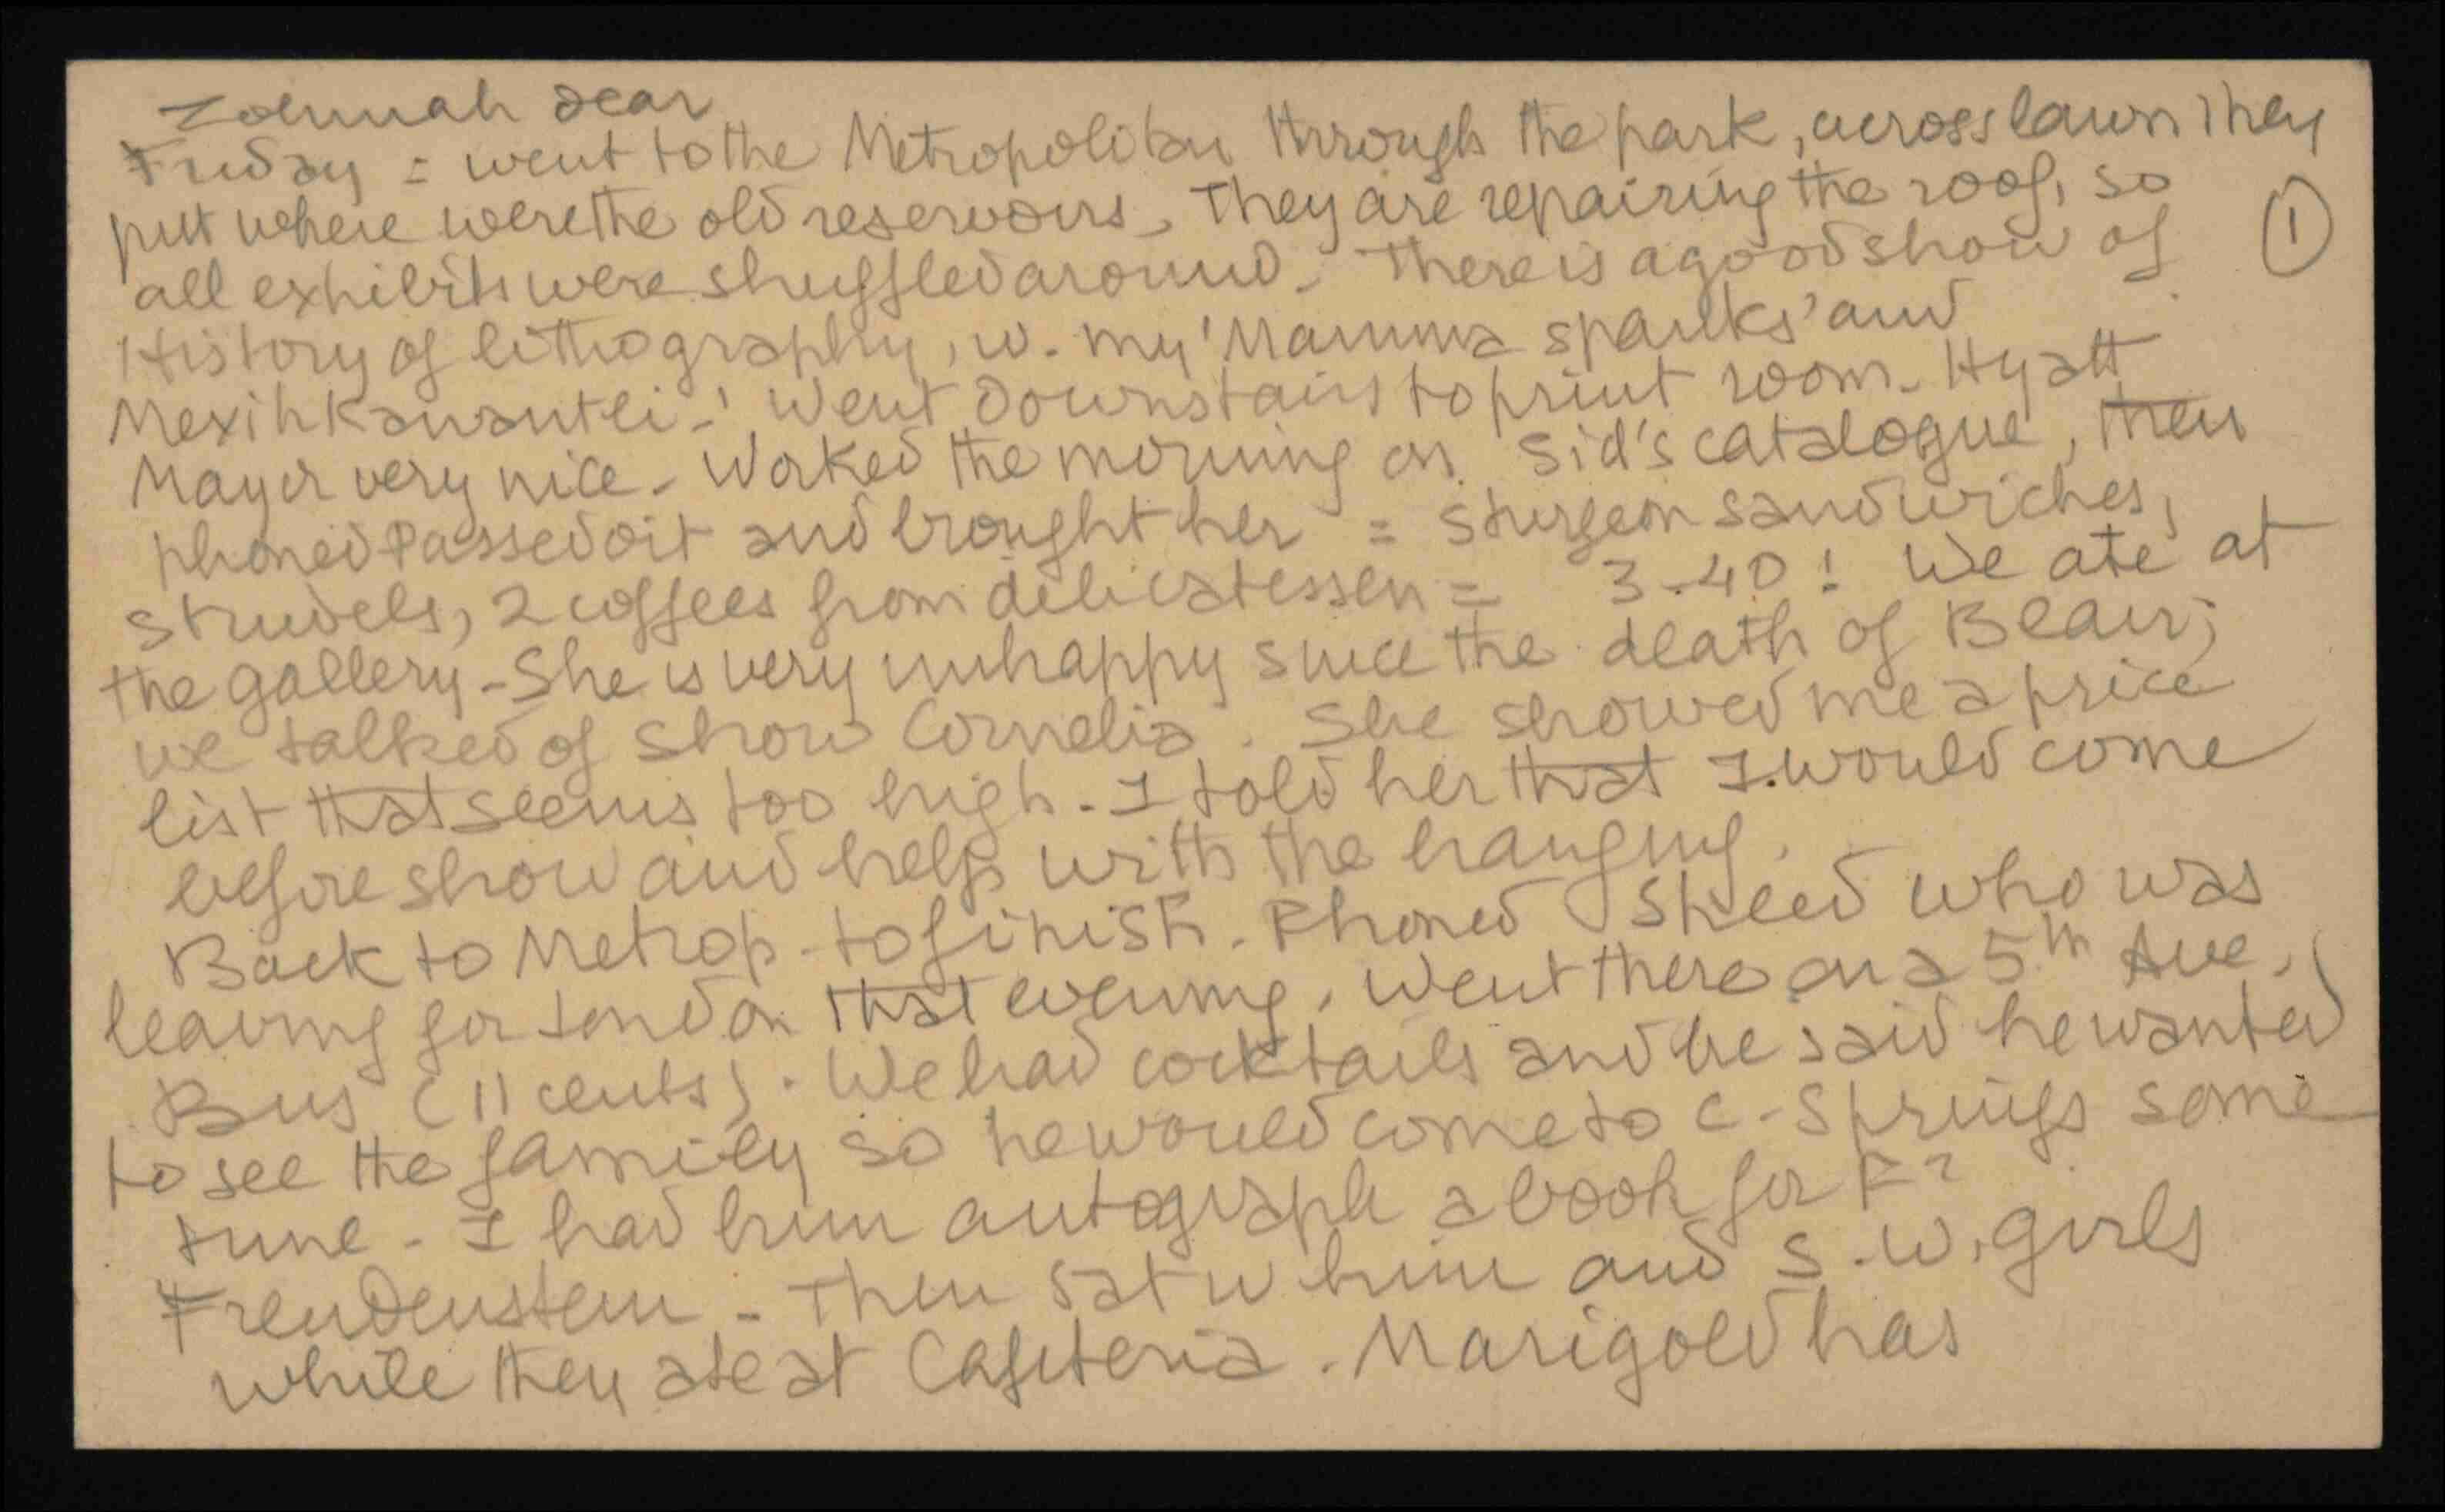 Zohmah dear
Friday = went to the Metropolitan through the park, across lawn they
put where were the old reservoirs. They are repairing the roof, so
all exhibits were shuffled around. There is a good show of
①
History of lithography, w. my 'Mamma spanks' and
Mexihkanantli.' Went downstairs to print room. Hyatt
Mayor very nice. Worked the morning on Sid's catalogue, then
phoned Passedoit and brought her = sturgeon sandwiches,
strudels, 2 coffees from delicatessen = 3.40! We ate at
the gallery - She is very unhappy since the death of Blair;
we talked of show Cornelia. She showed me a price
list that seems too high. I told her that I would come
before show and help with the hanging.
Back to Metrop. to finish. Phoned Sheed who was
leaving for London that evening. Went there on a 5th Ave.
Bus (11 cents). We had cocktails and he said he wanted
to see the family so he would come to C. Springs some
June. I had him autograph a book for Fr
Freudenstein - Then sat w him and S.W. girls
while they ate at Cafeteria. Marigold has